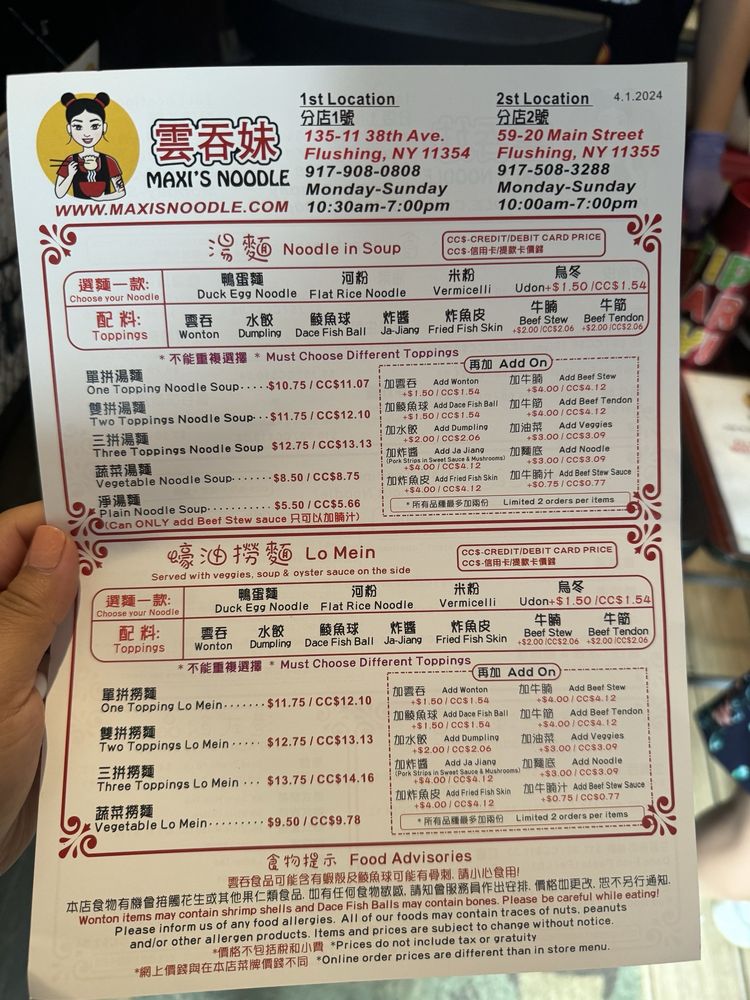 雲吞妹
MAXI'S NOODLE
WWW.MAXISNOODLE.COM
1st Location
分店1號
135-11 38th Ave.
Flushing, NY 11354
917-908-0808
Monday-Sunday
10:30am-7:00pm
2nd Location
分店2號
59-20 Main Street
Flushing, NY 11355
917-508-3288
Monday-Sunday
10:00am-7:00pm
4.1.2024
湯麵 Noodle in Soup
CC$-CREDIT/DEBIT CARD PRICE
CC$-信用卡/提款卡價錢
選麵一款: 鴨蛋麵 河粉 米粉 烏冬
Choose your Noodle Duck Egg Noodle Flat Rice Noodle Vermicelli Udon+$1.50 /CC$1.54
配料: 雲吞 水餃 鯪魚球 炸醬 炸魚皮 牛腩 牛筋
Toppings Wonton Dumpling Dace Fish Ball Ja-Jiang Fried Fish Skin Beef Stew Beef Tendon
+$2.00 /CC$2.06 +$2.00 /CC$2.06
* 不能重複選擇 * Must Choose Different Toppings
單拼湯麵
One Topping Noodle Soup·····$10.75 / CC$11.07
雙拼湯麵
Two Toppings Noodle Soup···$11.75 / CC$12.10
三拼湯麵
Three Toppings Noodle Soup $12.75 / CC$13.13
蔬菜湯麵
Vegetable Noodle Soup·······$8.50 / CC$8.75
淨湯麵
Plain Noodle Soup···········$5.50 / CC$5.66
(Can ONLY add Beef Stew sauce 只可以加腩汁)
再加 Add On
加雲吞 Add Wonton
+$1.50 / CC$1.54
加鯪魚球 Add Dace Fish Ball
+$1.50 / CC$1.54
加水餃 Add Dumpling
+$2.00 / CC$2.06
加炸醬 Add Ja Jiang
(Pork Strips in Sweet Sauce & Mushrooms)
+$4.00 / CC$4.12
加炸魚皮 Add Fried Fish Skin
+$4.00 / CC$4.12
加牛腩 Add Beef Stew
+$4.00 / CC$4.12
加牛筋 Add Beef Tendon
+$4.00 / CC$4.12
加油菜 Add Veggies
+$3.00 / CC$3.09
加麵底 Add Noodle
+$3.00 / CC$3.09
加牛腩汁 Add Beef Stew Sauce
+$0.75 / CC$0.77
*所有品種最多加兩份 Limited 2 orders per items
蠔油撈麵 Lo Mein
Served with veggies, soup & oyster sauce on the side
CC$-CREDIT/DEBIT CARD PRICE
CC$-信用卡/提款卡價錢
選麵一款: 鴨蛋麵 河粉 米粉 烏冬
Choose your Noodle Duck Egg Noodle Flat Rice Noodle Vermicelli Udon+$1.50 /CC$1.54
配料: 雲吞 水餃 鯪魚球 炸醬 炸魚皮 牛腩 牛筋
Toppings Wonton Dumpling Dace Fish Ball Ja-Jiang Fried Fish Skin Beef Stew Beef Tendon
+$2.00 /CC$2.06 +$2.00 /CC$2.06
* 不能重複選擇 * Must Choose Different Toppings
單拼撈麵
One Topping Lo Mein·······$11.75 / CC$12.10
雙拼撈麵
Two Toppings Lo Mein ····· $12.75 / CC$13.13
三拼撈麵
Three Toppings Lo Mein ··· $13.75 / CC$14.16
蔬菜撈麵
Vegetable Lo Mein·········$9.50 / CC$9.78
再加 Add On
加雲吞 Add Wonton
+$1.50 / CC$1.54
加鯪魚球 Add Dace Fish Ball
+$1.50 / CC$1.54
加水餃 Add Dumpling
+$2.00 / CC$2.06
加炸醬 Add Ja Jiang
(Pork Strips in Sweet Sauce & Mushrooms)
+$4.00 / CC$4.12
加炸魚皮 Add Fried Fish Skin
+$4.00 / CC$4.12
加牛腩 Add Beef Stew
+$4.00 / CC$4.12
加牛筋 Add Beef Tendon
+$4.00 / CC$4.12
加油菜 Add Veggies
+$3.00 / CC$3.09
加麵底 Add Noodle
+$3.00 / CC$3.09
加牛腩汁 Add Beef Stew Sauce
+$0.75 / CC$0.77
*所有品種最多加兩份 Limited 2 orders per items
食物提示 Food Advisories
雲吞食品可能含有蝦殼及鯪魚球可能有骨刺, 請小心食用!
本店食物有機會接觸花生或其他果仁類食品, 如有任何食物敏感, 請知會服務員作出安排, 價格如更改, 恕不另行通知.
Wonton items may contain shrimp shells and Dace Fish Balls may contain bones. Please be careful while eating!
Please inform us of any food allergies. All of our foods may contain traces of nuts, peanuts
and/or other allergen products. Items and prices are subject to change without notice.
*價格不包括稅和小費 *Prices do not include tax or gratuity
*網上價錢與在本店菜牌價錢不同 *Online order prices are different than in store menu.